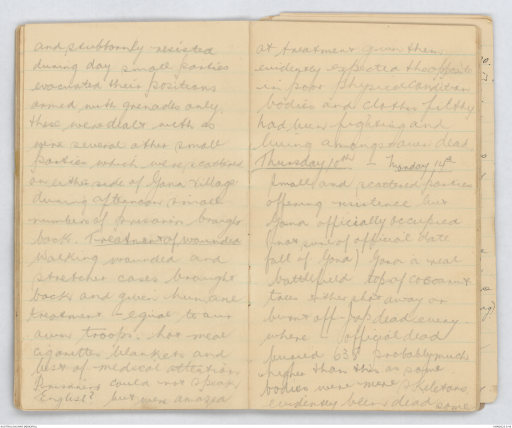 and stubbornly resisted
during day small parties
evacuated their positions
armed with grenades only
these were dealt with as
were several other small
parties which were scattered
on either side of Gona village
during afternoon small
numbers of prisoners brought
back. Treatment of wounded
walking wounded and
stretcher cases brought
back and given humane
treatment - equal to our
own troops. hot meal
cigarettes blankets and
best of medical attention
Prisoners could not speak
English? but were amazed
at treatment given them
evidently expected the opposite
in poor physical condition
bodies and clothes filthy
had been fighting and
living amongst own dead
Thursday 10th - Monday 14th
small and scattered parties
offering resistance but
Gona officially occupied
(not sure of official date
fall of Gona) Gona a real
battlefield top of cocoanut
trees either shot away or
burnt off - Jap dead every-
where official dead
buried 638 probably much
higher than this as some
bodies were mere skeletons
evidently been dead some